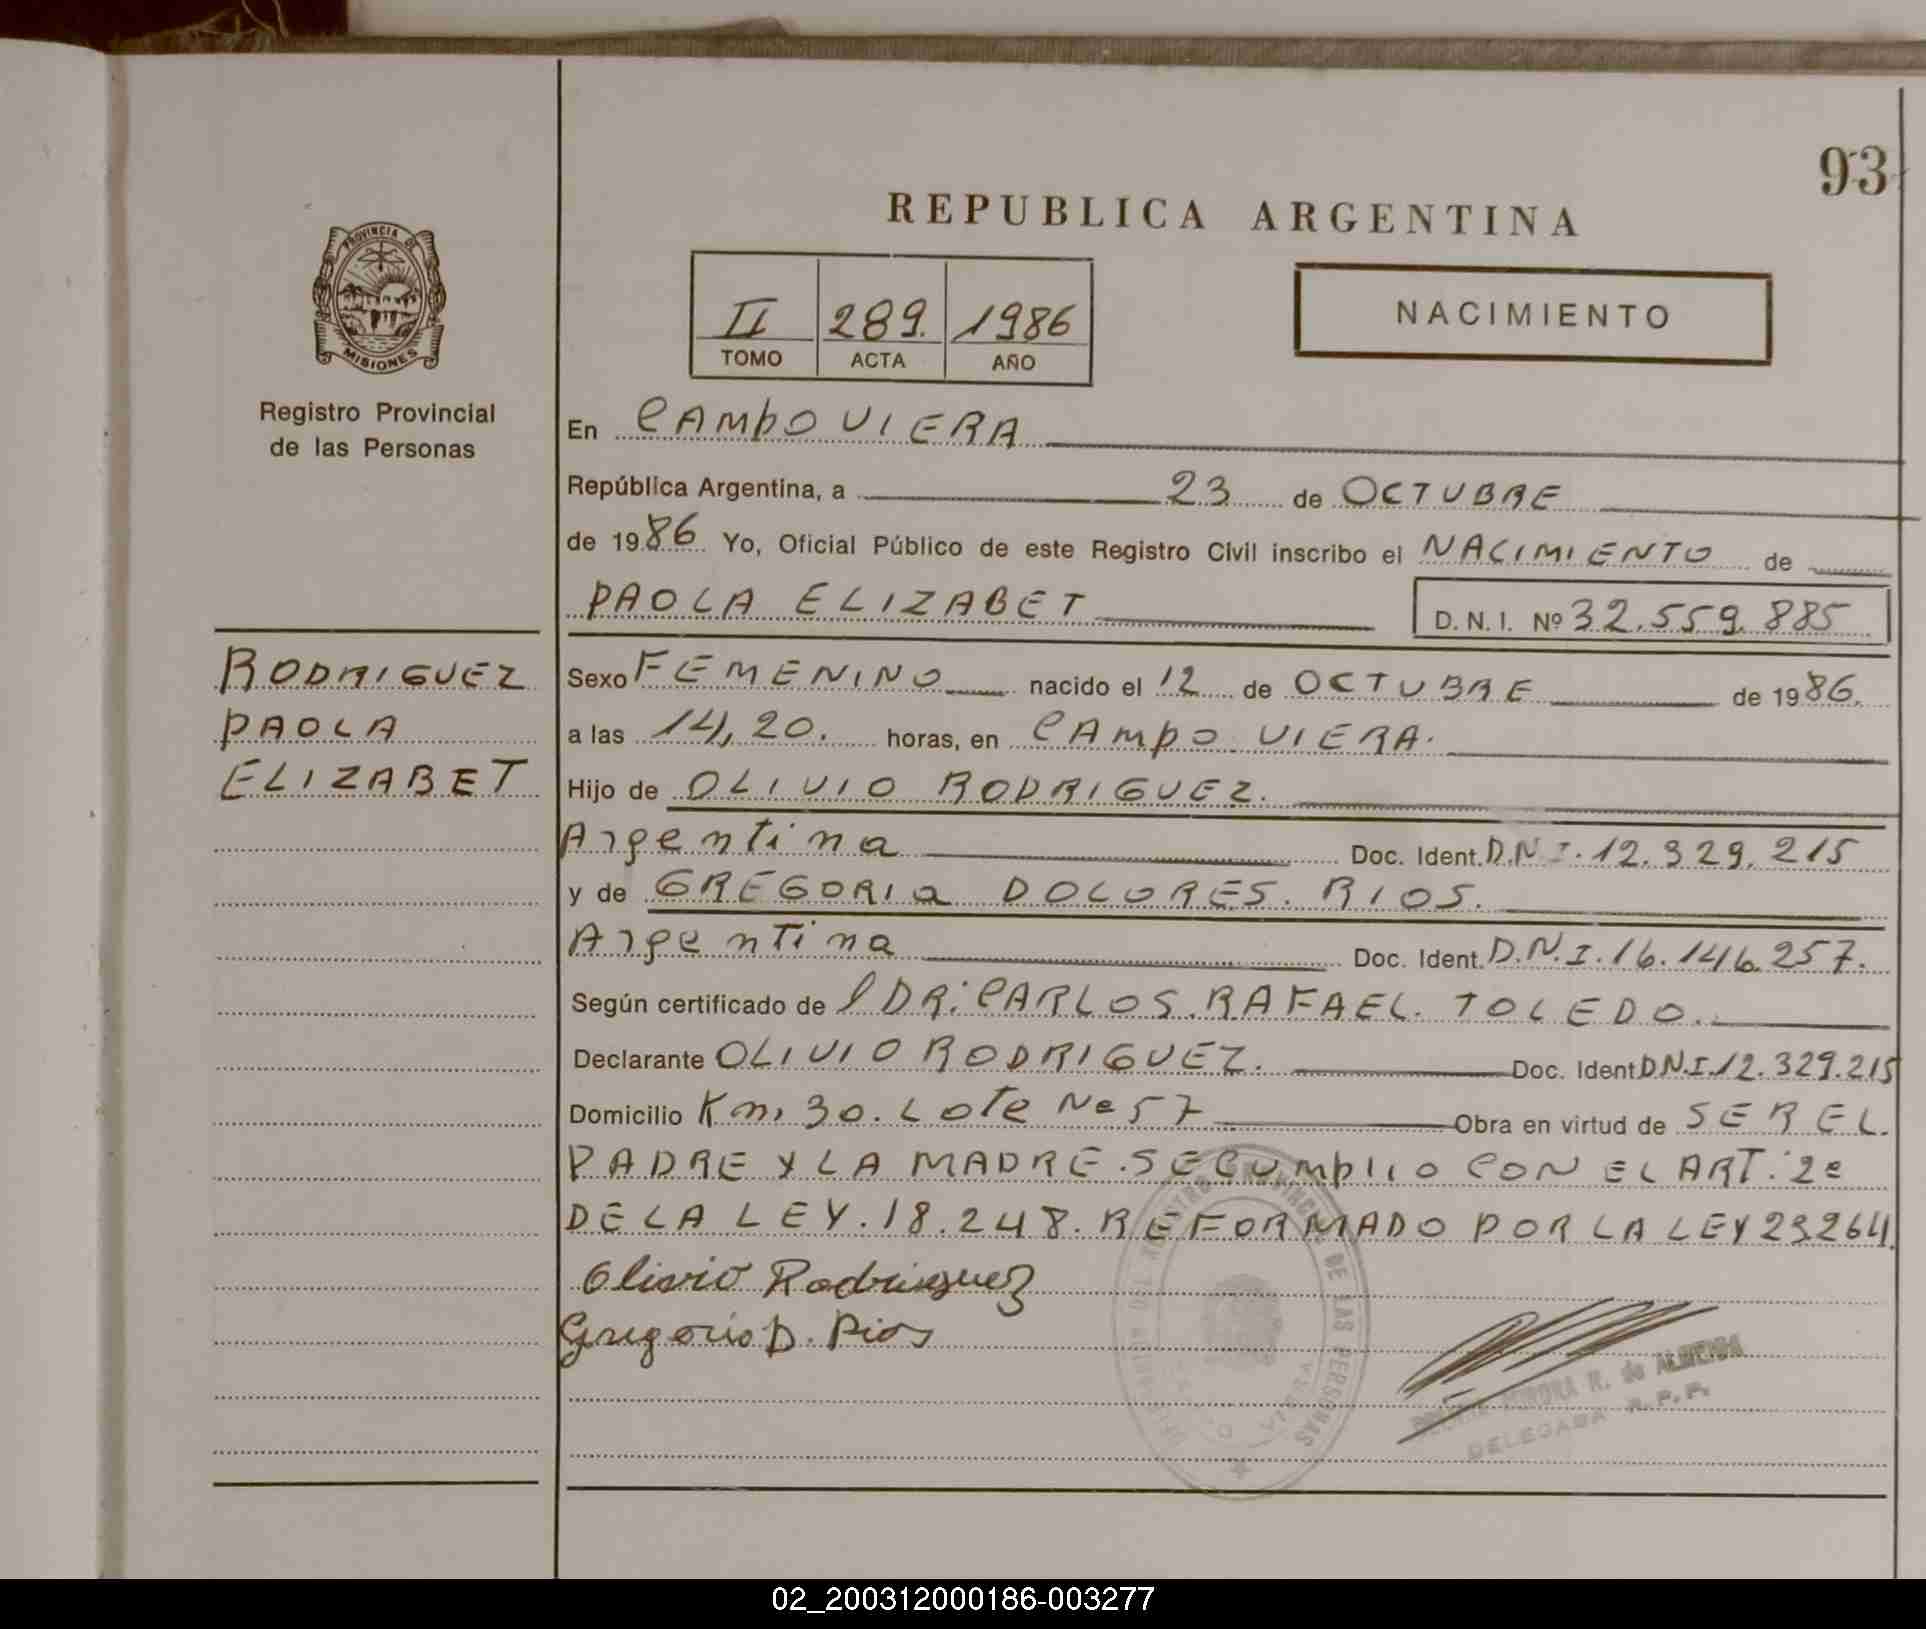 93
REPUBLICA ARGENTINA
PROVINCIA DE
MISIONES
II 289. 1986
TOMO ACTA AÑO
NACIMIENTO
Registro Provincial
de las Personas
En CAMPO VIERA
República Argentina, a 23 de OCTUBRE
de 1986 Yo, Oficial Público de este Registro Civil inscribo el NACIMIENTO de
PAOLA ELIZABET D. N. I. Nº 32.559.885
RODRIGUEZ
PAOLA
ELIZABET
Sexo FEMENINO nacido el 12 de OCTUBRE de 1986.
a las 14,20. horas, en CAMPO VIERA.
Hijo de OLIVIO RODRIGUEZ.
Argentina Doc. Ident. D.N.I. 12.329.215
y de GREGORIA DOLORES. RIOS.
Argentina Doc. Ident. D.N.I. 16.146.257.
Según certificado de l DR: CARLOS. RAFAEL. TOLEDO.
Declarante OLIVIO RODRIGUEZ. Doc. Ident D.N.I. 12.329.215
Domicilio Km. 30. Lote Nº 57 Obra en virtud de SER EL.
PADRE Y LA MADRE. SE CUMPLIO CON EL ART. 2º
DE LA LEY. 18.248. REFORMADO POR LA LEY 23.264.
Olivio Rodriguez
Gregoria D. Rios
REGISTRO PROVINCIAL DE LAS PERSONAS
R. de ALMEIDA
DELEGADA R. P. P.
02_200312000186-003277